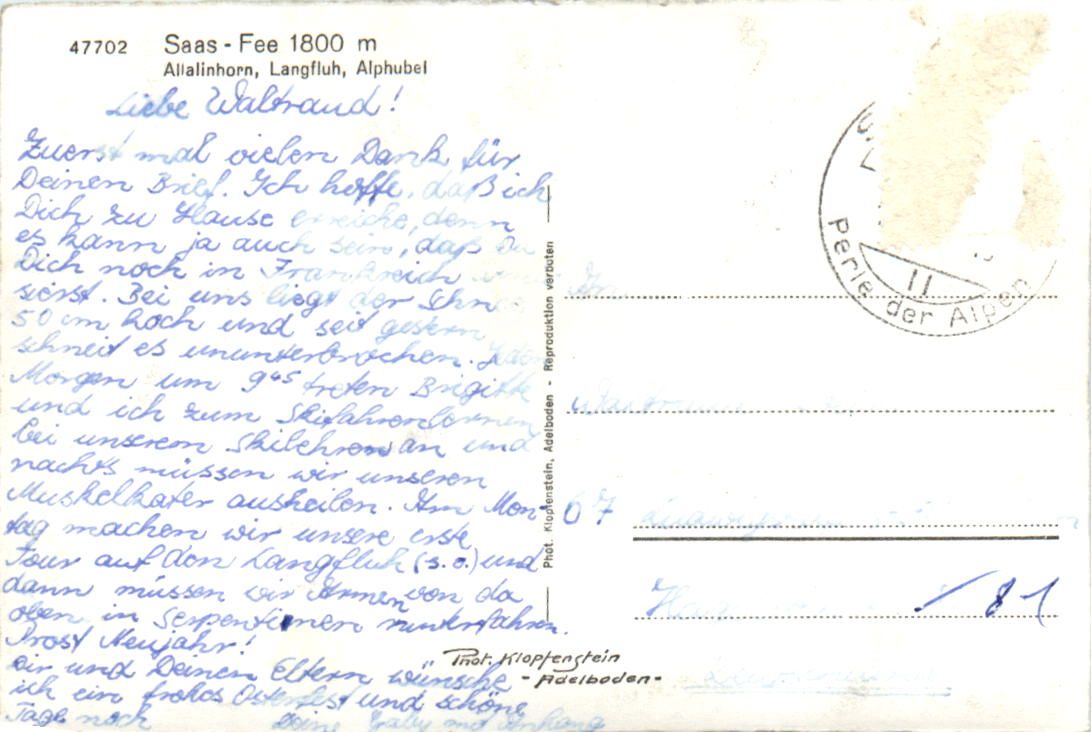 47702 Saas-Fee 1800 m
Allalinhorn, Langfluh, Alphubel
Liebe Waltraud!
Zuerst mal vielen Dank für
Deinen Brief. Ich hoffe, daß ich
Dich zu Hause erreiche, denn
es kann ja auch sein, daß Du
Dich noch in Frankreich
sierst. Bei uns liegt der Schnee
50 cm hoch und seit gestern
schneit es ununterbrochen. Jeden
Morgen um 9⁴⁵ treten Brigitte
und ich zum Skifahrenlernen
bei unserem Skilehrer an und
nachts müssen wir unseren
Muskelkater ausheilen. Am Mon-
tag machen wir unsere erste
Tour auf den Langfluh (s.o.) und
dann müssen wir Armen von da
oben in Serpentinen runterfahren.
Prost Neujahr!
Dir und Deinen Eltern wünsche
ich ein frohes Osterfest und schöne
Tage noch
Deine Gaby mit Anhang
Phot. Klopfenstein, Adelboden - Reproduktion verboten
Phot. Klopfenstein
- Adelboden -
Perle der Alpen
11
67
81